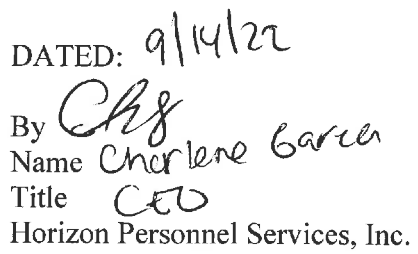 DATED: 9/14/22
By
Name Charlene Garcia
Title CEO
Horizon Personnel Services, Inc.